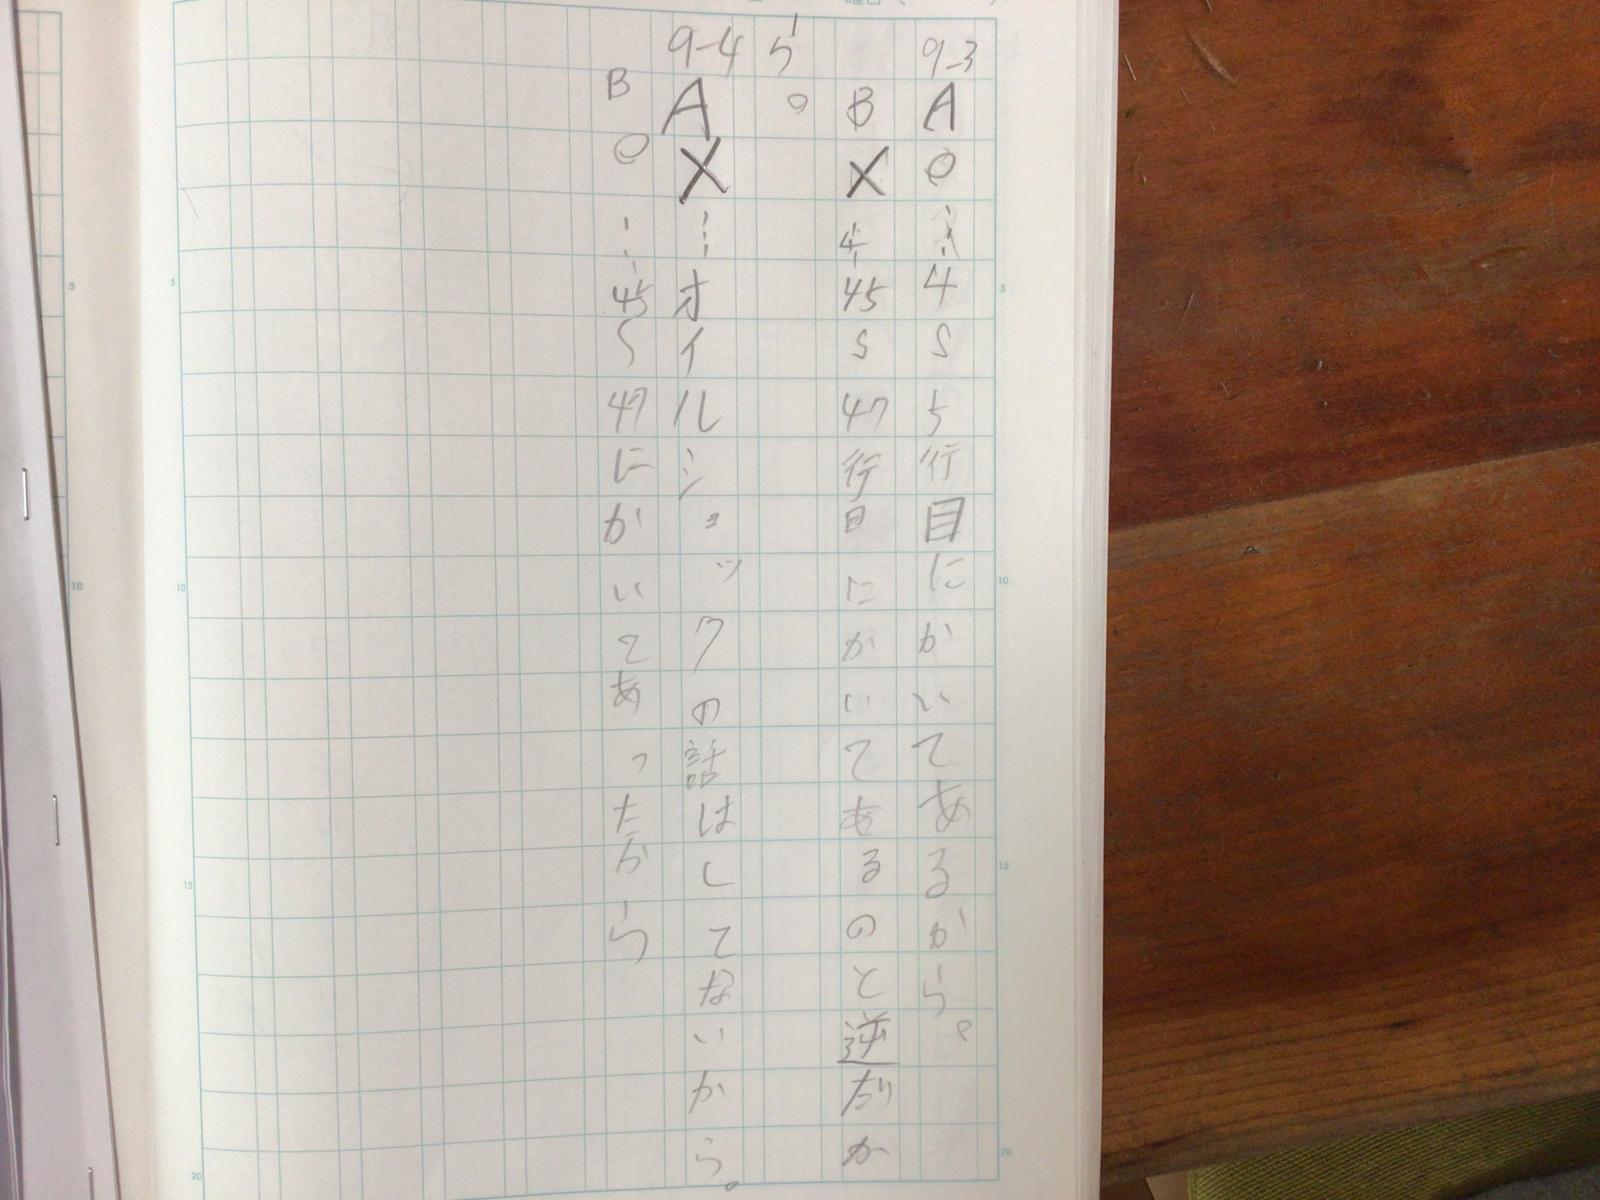 9-3
A○…4〜5行目にかいてあるから。
B×…45〜47行目にかいてあるのと逆だか
ら。
9-4
A×…オイルショックの話はしてないから。
B○…45〜47にかいてあったから